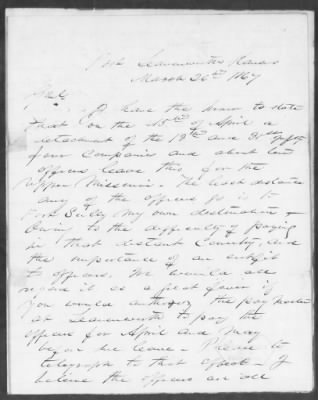 Fort Leavenworth Kansas
March 26th 1867
Sir
I have the honor to state
that on the 15th of April a
detachment of the 13th and 31st Infty
four Companies and about ten
officers leave this for the
Upper Missouri. The least distance
any of the officers go is to
Fort Sully my own destination
Owing to the difficulty of paying
in that distant Country, and
the importance of an outfit
to officers, We would all
regard it as a great favor if
you would authorize the paymaster
at Leavenworth to pay the
officers for April and May
before we leave - Please to
telegraph to that effect - I
believe the officers are all